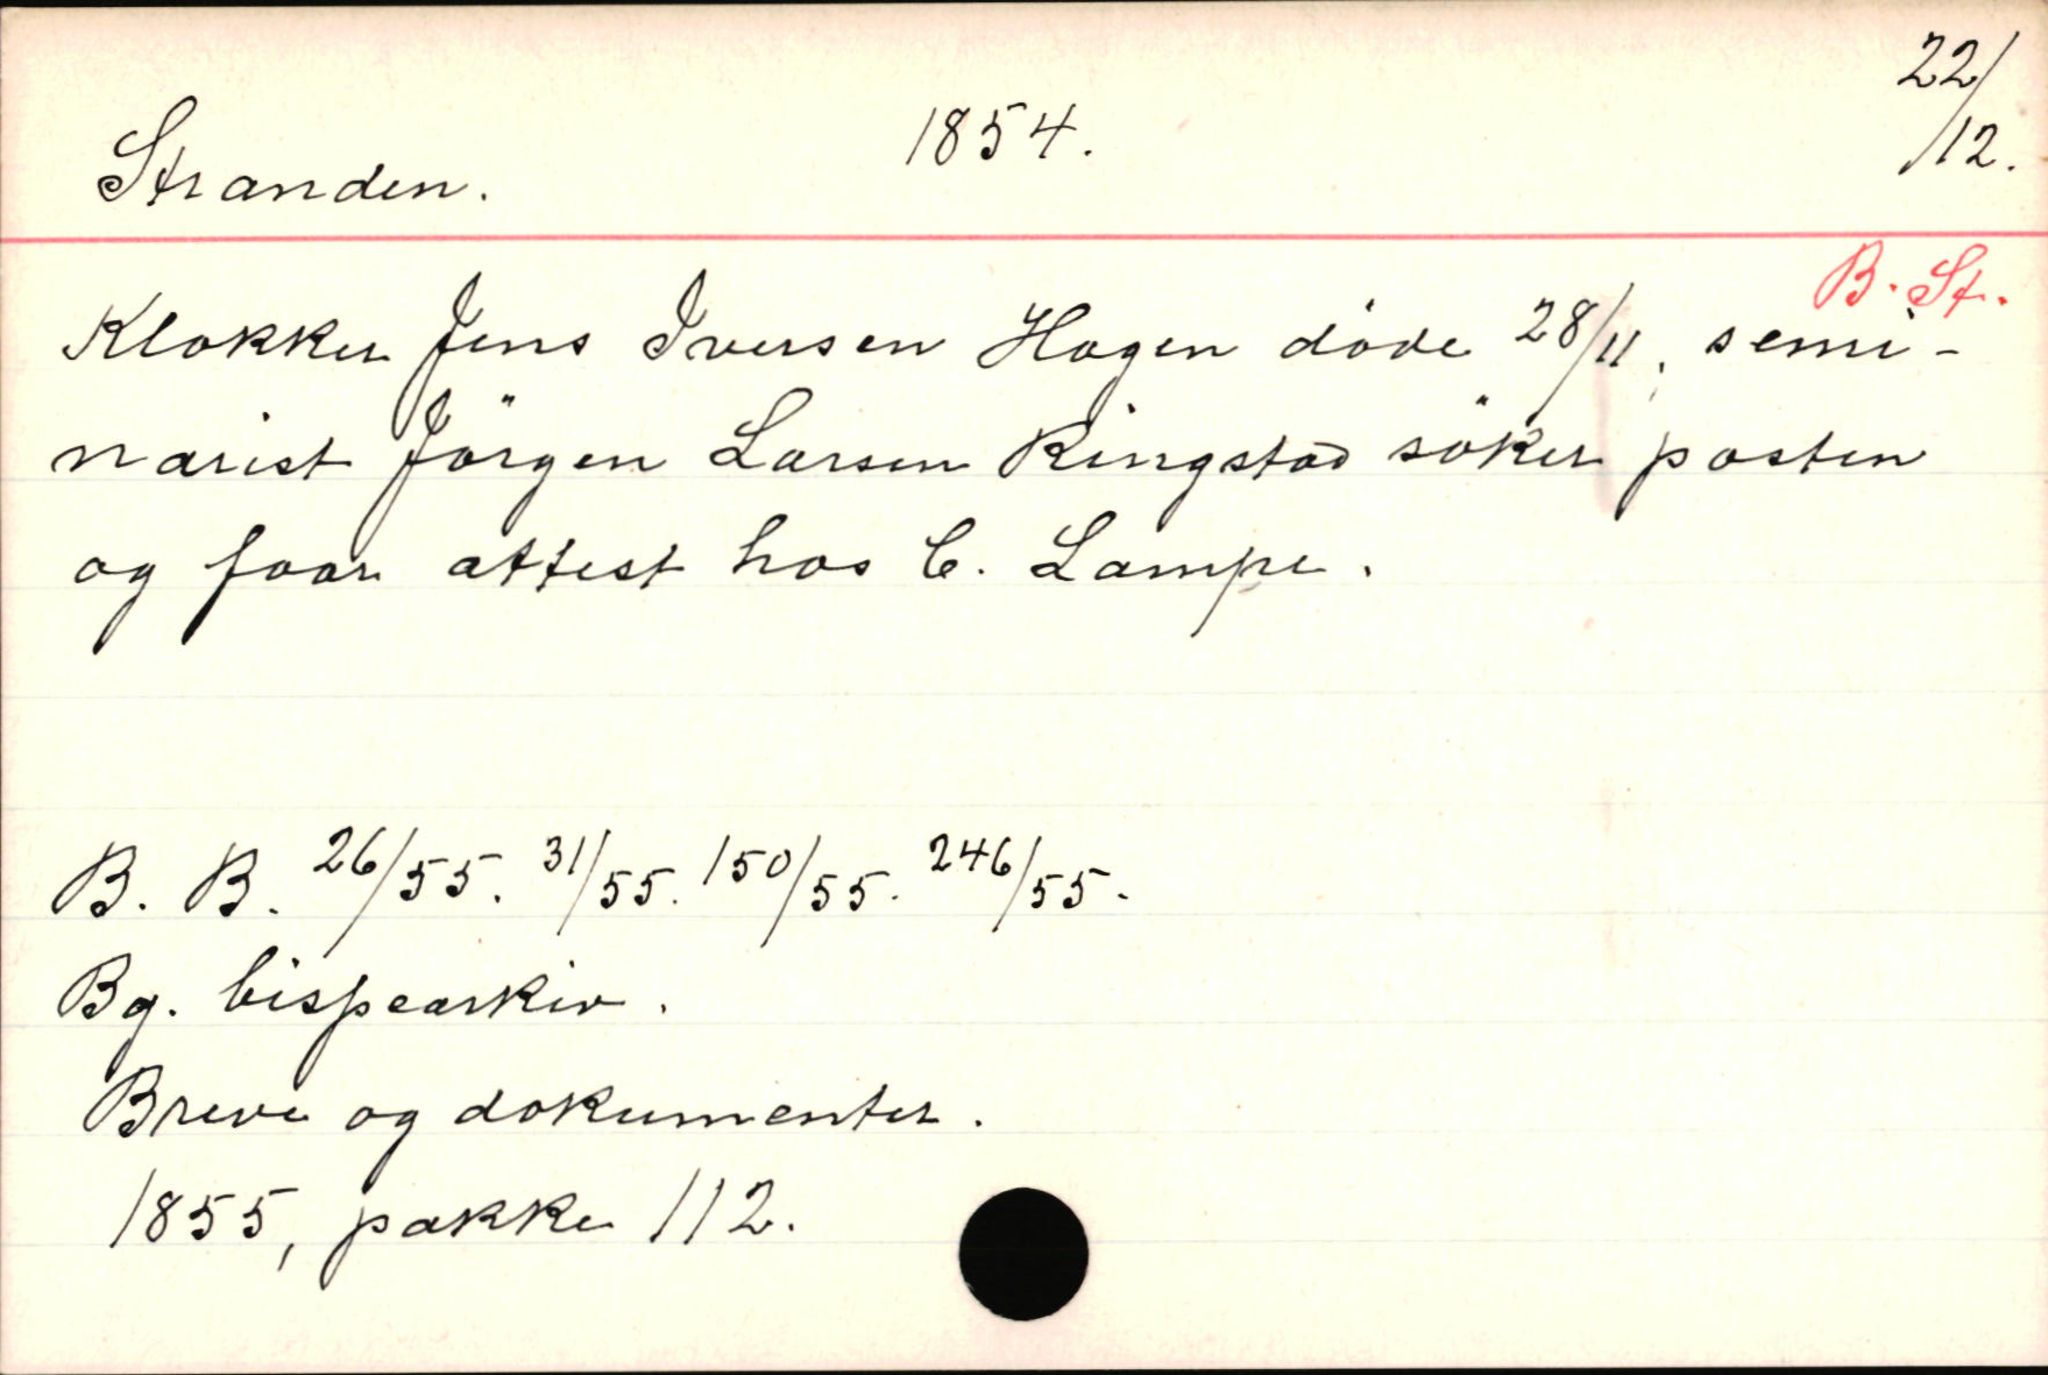 Stranden. 1854. 22/12.
B. St.
Klokker Jens Iversen Hagen döde 28/11, semi-
narist Jörgen Larsen Ringstad söker posten
og faar attest hos C. Lampe.
B. B. 26/55. 31/55. 150/55. 246/55.
Bg. bispearkiv.
Breve og dokumenter.
1855, pakke 112.